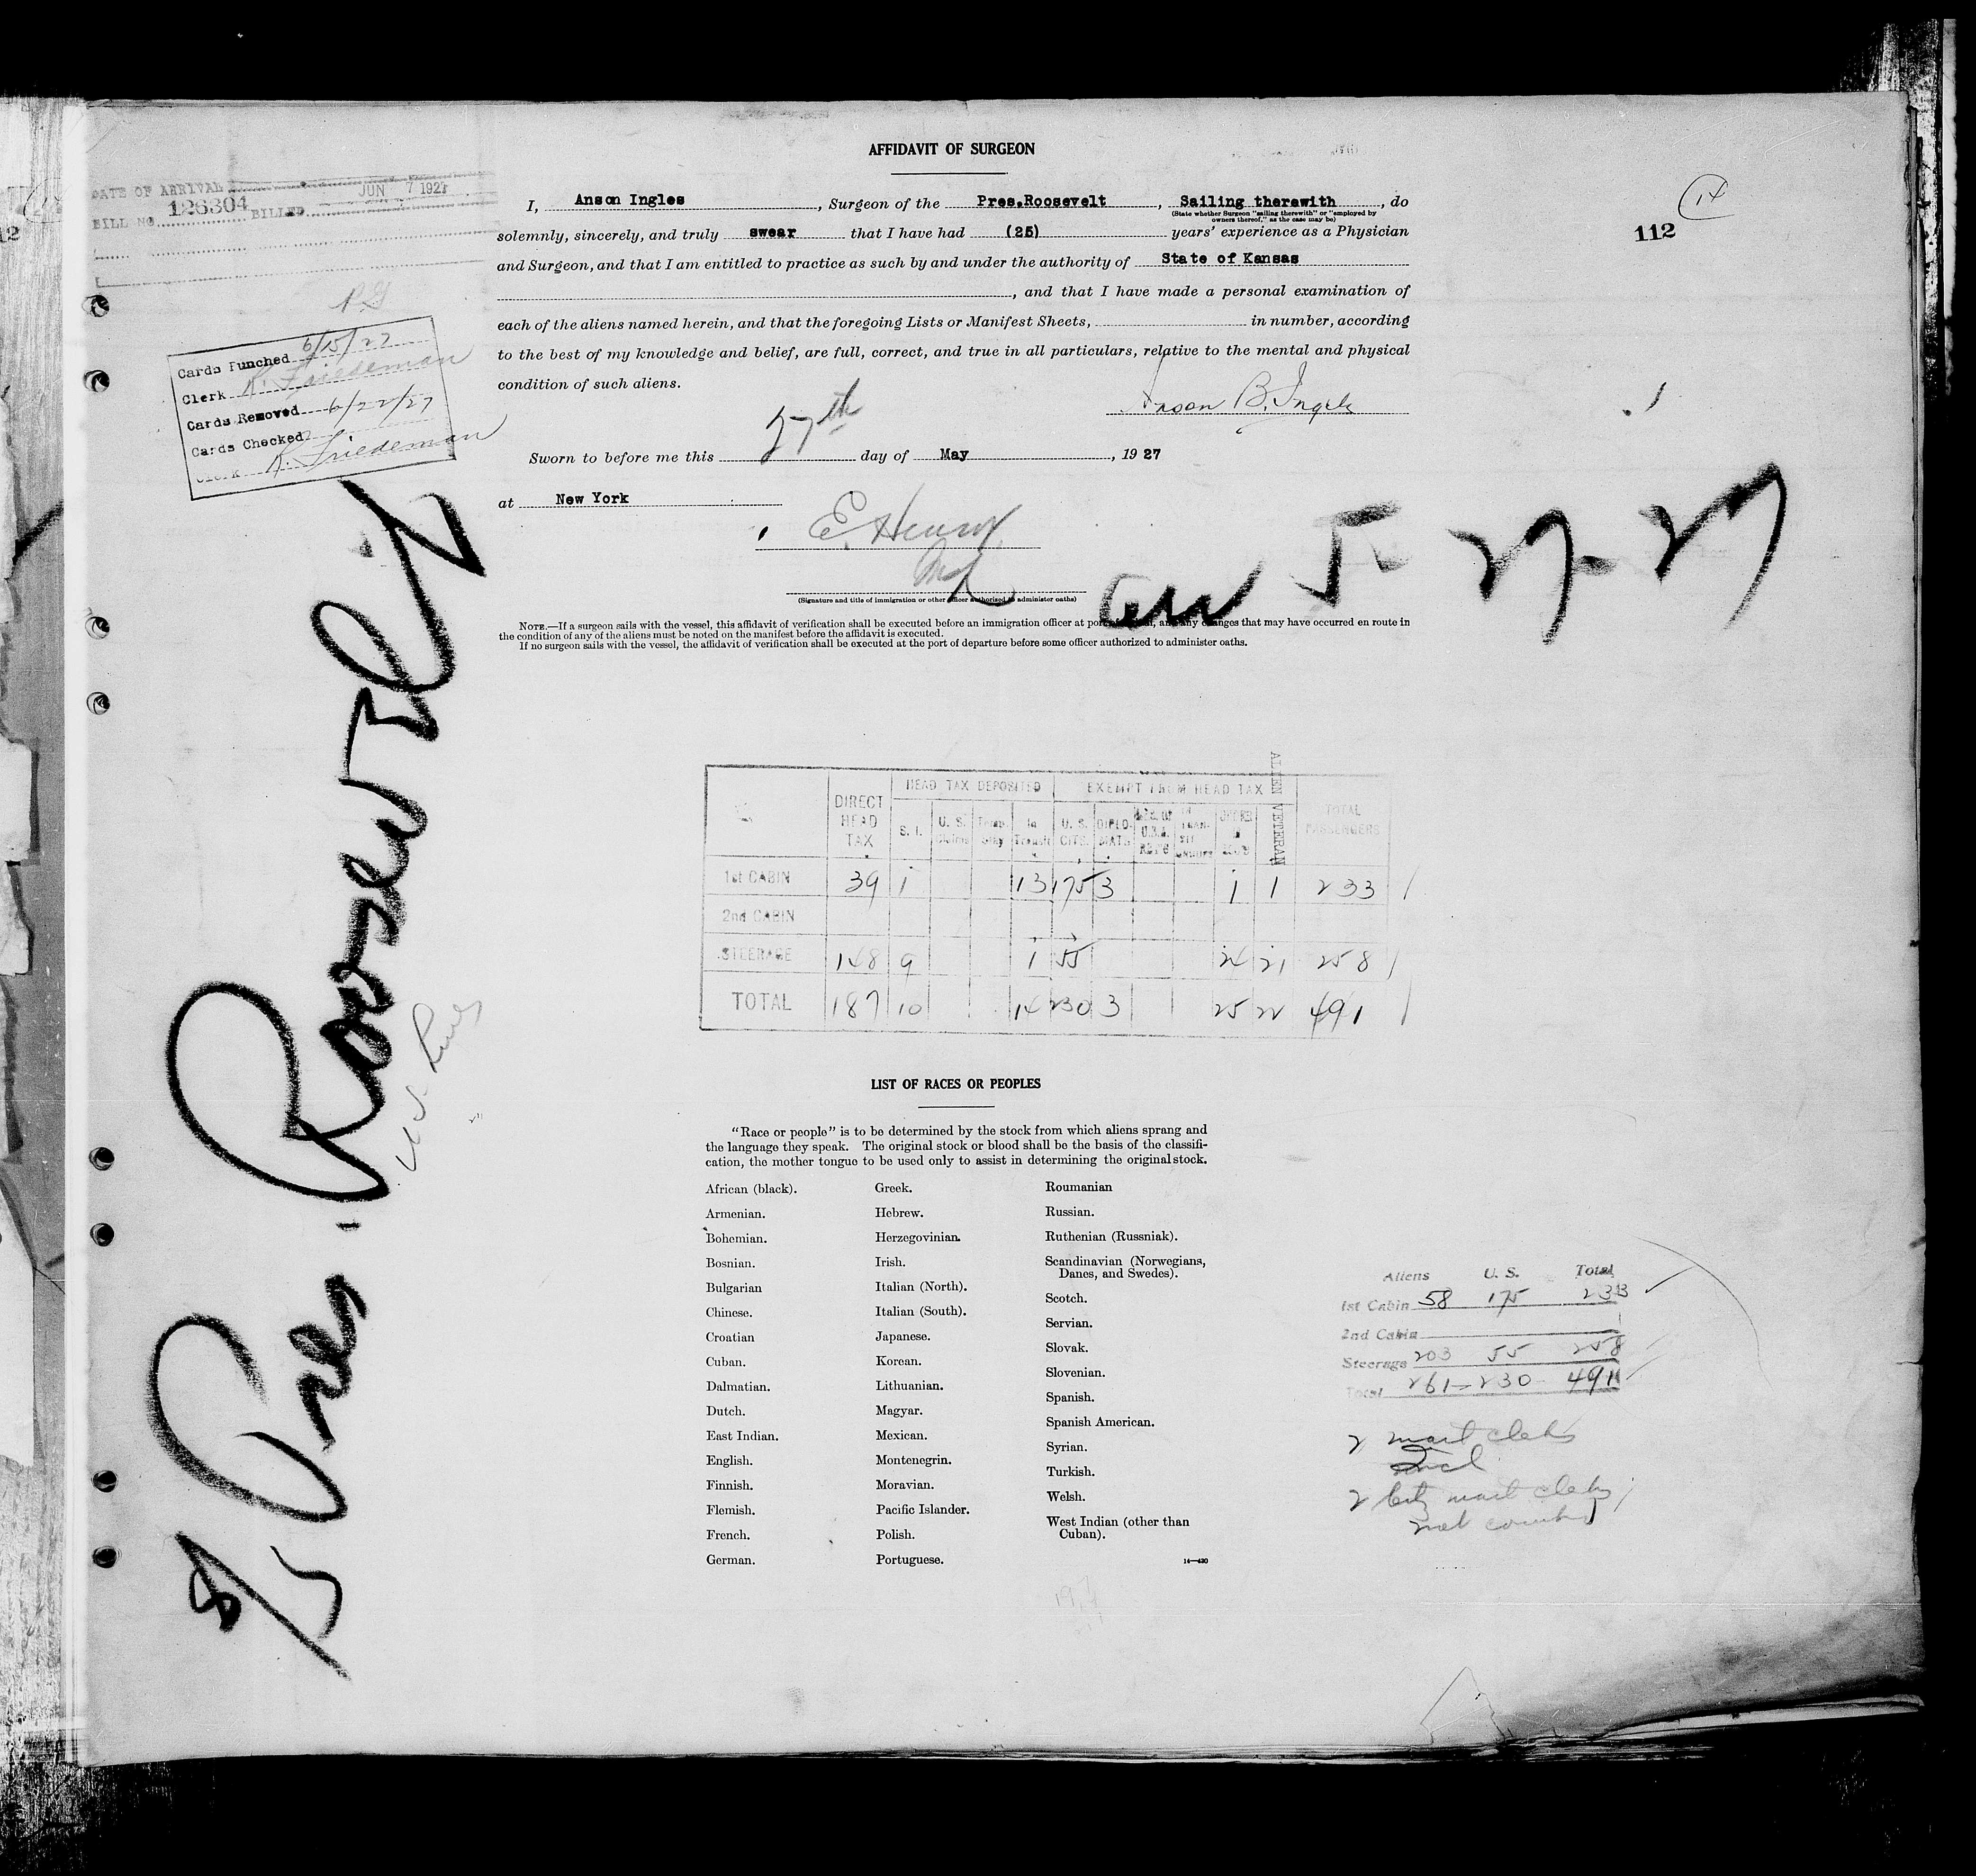 AFFIDAVIT OF SURGEON
DATE OF ARRIVAL JUN 7 1927
BILL NO. 126304 BILLED
14
112
I, Anson Ingles, Surgeon of the Pres.Roosevelt, Sailing therewith, do
(State whether Surgeon "sailing therewith" or "employed by
owners thereof," as the case may be)
solemnly, sincerely, and truly swear that I have had (25) years' experience as a Physician
and Surgeon, and that I am entitled to practice as such by and under the authority of State of Kansas
, and that I have made a personal examination of
each of the aliens named herein, and that the foregoing Lists or Manifest Sheets, in number, according
to the best of my knowledge and belief, are full, correct, and true in all particulars, relative to the mental and physical
condition of such aliens.
Anson B. Ingels
Cards Punched 6/15/27
Clerk K. Friedeman
Cards Removed 6/22/27
Cards Checked
Clerk K. Friedeman
Sworn to before me this 27th day of May, 19 27
at New York
E. Henry
(Signature and title of immigration or other officer authorized to administer oaths)
5-27-27
NOTE.—If a surgeon sails with the vessel, this affidavit of verification shall be executed before an immigration officer at port of , any changes that may have occurred en route in
the condition of any of the aliens must be noted on the manifest before the affidavit is executed.
If no surgeon sails with the vessel, the affidavit of verification shall be executed at the port of departure before some officer authorized to administer oaths.
S/S Pres. Roosevelt
U.S. Lines
HEAD TAX DEPOSITED EXEMPT FROM HEAD TAX
DIRECT HEAD TAX S. I. U. S. Claims Temp. Stay In Transit U. S. CITS. DIPLO-MATS ALIEN VETERAN TOTAL PASSENGERS
1st CABIN 39 1 13 175 3 1 1 233
2nd CABIN
STEERAGE 148 9 1 55 24 21 258
TOTAL 187 10 14 230 3 25 22 491
LIST OF RACES OR PEOPLES
"Race or people" is to be determined by the stock from which aliens sprang and
the language they speak. The original stock or blood shall be the basis of the classifi-
cation, the mother tongue to be used only to assist in determining the original stock.
African (black).
Armenian.
Bohemian.
Bosnian.
Bulgarian
Chinese.
Croatian
Cuban.
Dalmatian.
Dutch.
East Indian.
English.
Finnish.
Flemish.
French.
German.
Greek.
Hebrew.
Herzegovinian.
Irish.
Italian (North).
Italian (South).
Japanese.
Korean.
Lithuanian.
Magyar.
Mexican.
Montenegrin.
Moravian.
Pacific Islander.
Polish.
Portuguese.
Roumanian
Russian.
Ruthenian (Russniak).
Scandinavian (Norwegians,
Danes, and Swedes).
Scotch.
Servian.
Slovak.
Slovenian.
Spanish.
Spanish American.
Syrian.
Turkish.
Welsh.
West Indian (other than
Cuban).
14—420
Aliens U. S. Total
1st Cabin 58 175 233
2nd Cabin
Steerage 203 55 258
Total 261-230-491
2 mail clerks
Incl
2 mail clerks
not counted